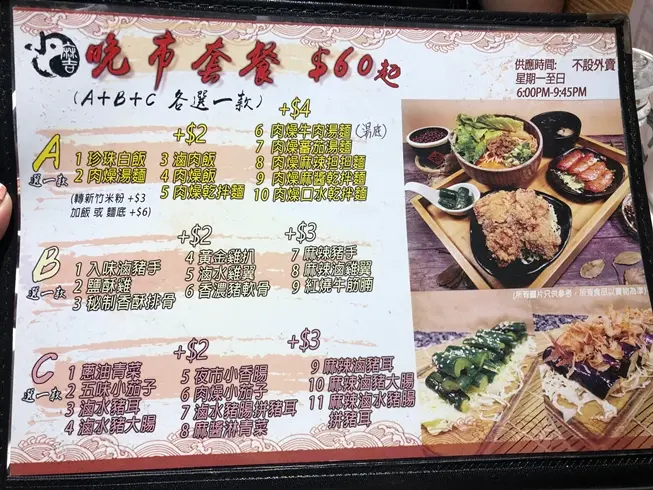 小麻吉
晚市套餐 $60起
(A+B+C 各選一款)
供應時間: 不設外賣
星期一至日
6:00PM-9:45PM
A
選一款
1 珍珠白飯
2 肉燥湯麵
(轉新竹米粉 +$3
加飯 或 麵底 +$6)
+$2
3 滷肉飯
4 肉燥飯
5 肉燥乾拌麵
+$4
6 肉燥牛肉湯麵 (湯底)
7 肉燥番茄湯麵
8 肉燥麻辣担担麵
9 肉燥麻醬乾拌麵
10 肉燥口水乾拌麵
B
選一款
1 入味滷豬手
2 鹽酥雞
3 秘制香酥排骨
+$2
4 黃金雞扒
5 滷水雞翼
6 香濃豬軟骨
+$3
7 麻辣豬手
8 麻辣滷雞翼
9 紅燒牛筋腩
C
選一款
1 蔥油青菜
2 五味小茄子
3 滷水豬耳
4 滷水豬大腸
+$2
5 夜市小香腸
6 肉燥小茄子
7 滷水豬腸拼豬耳
8 麻醬淋青菜
+$3
9 麻辣滷豬耳
10 麻辣滷豬大腸
11 麻辣滷水豬腸
拼豬耳
(所有圖片只供參考，所有食品以實物為準)